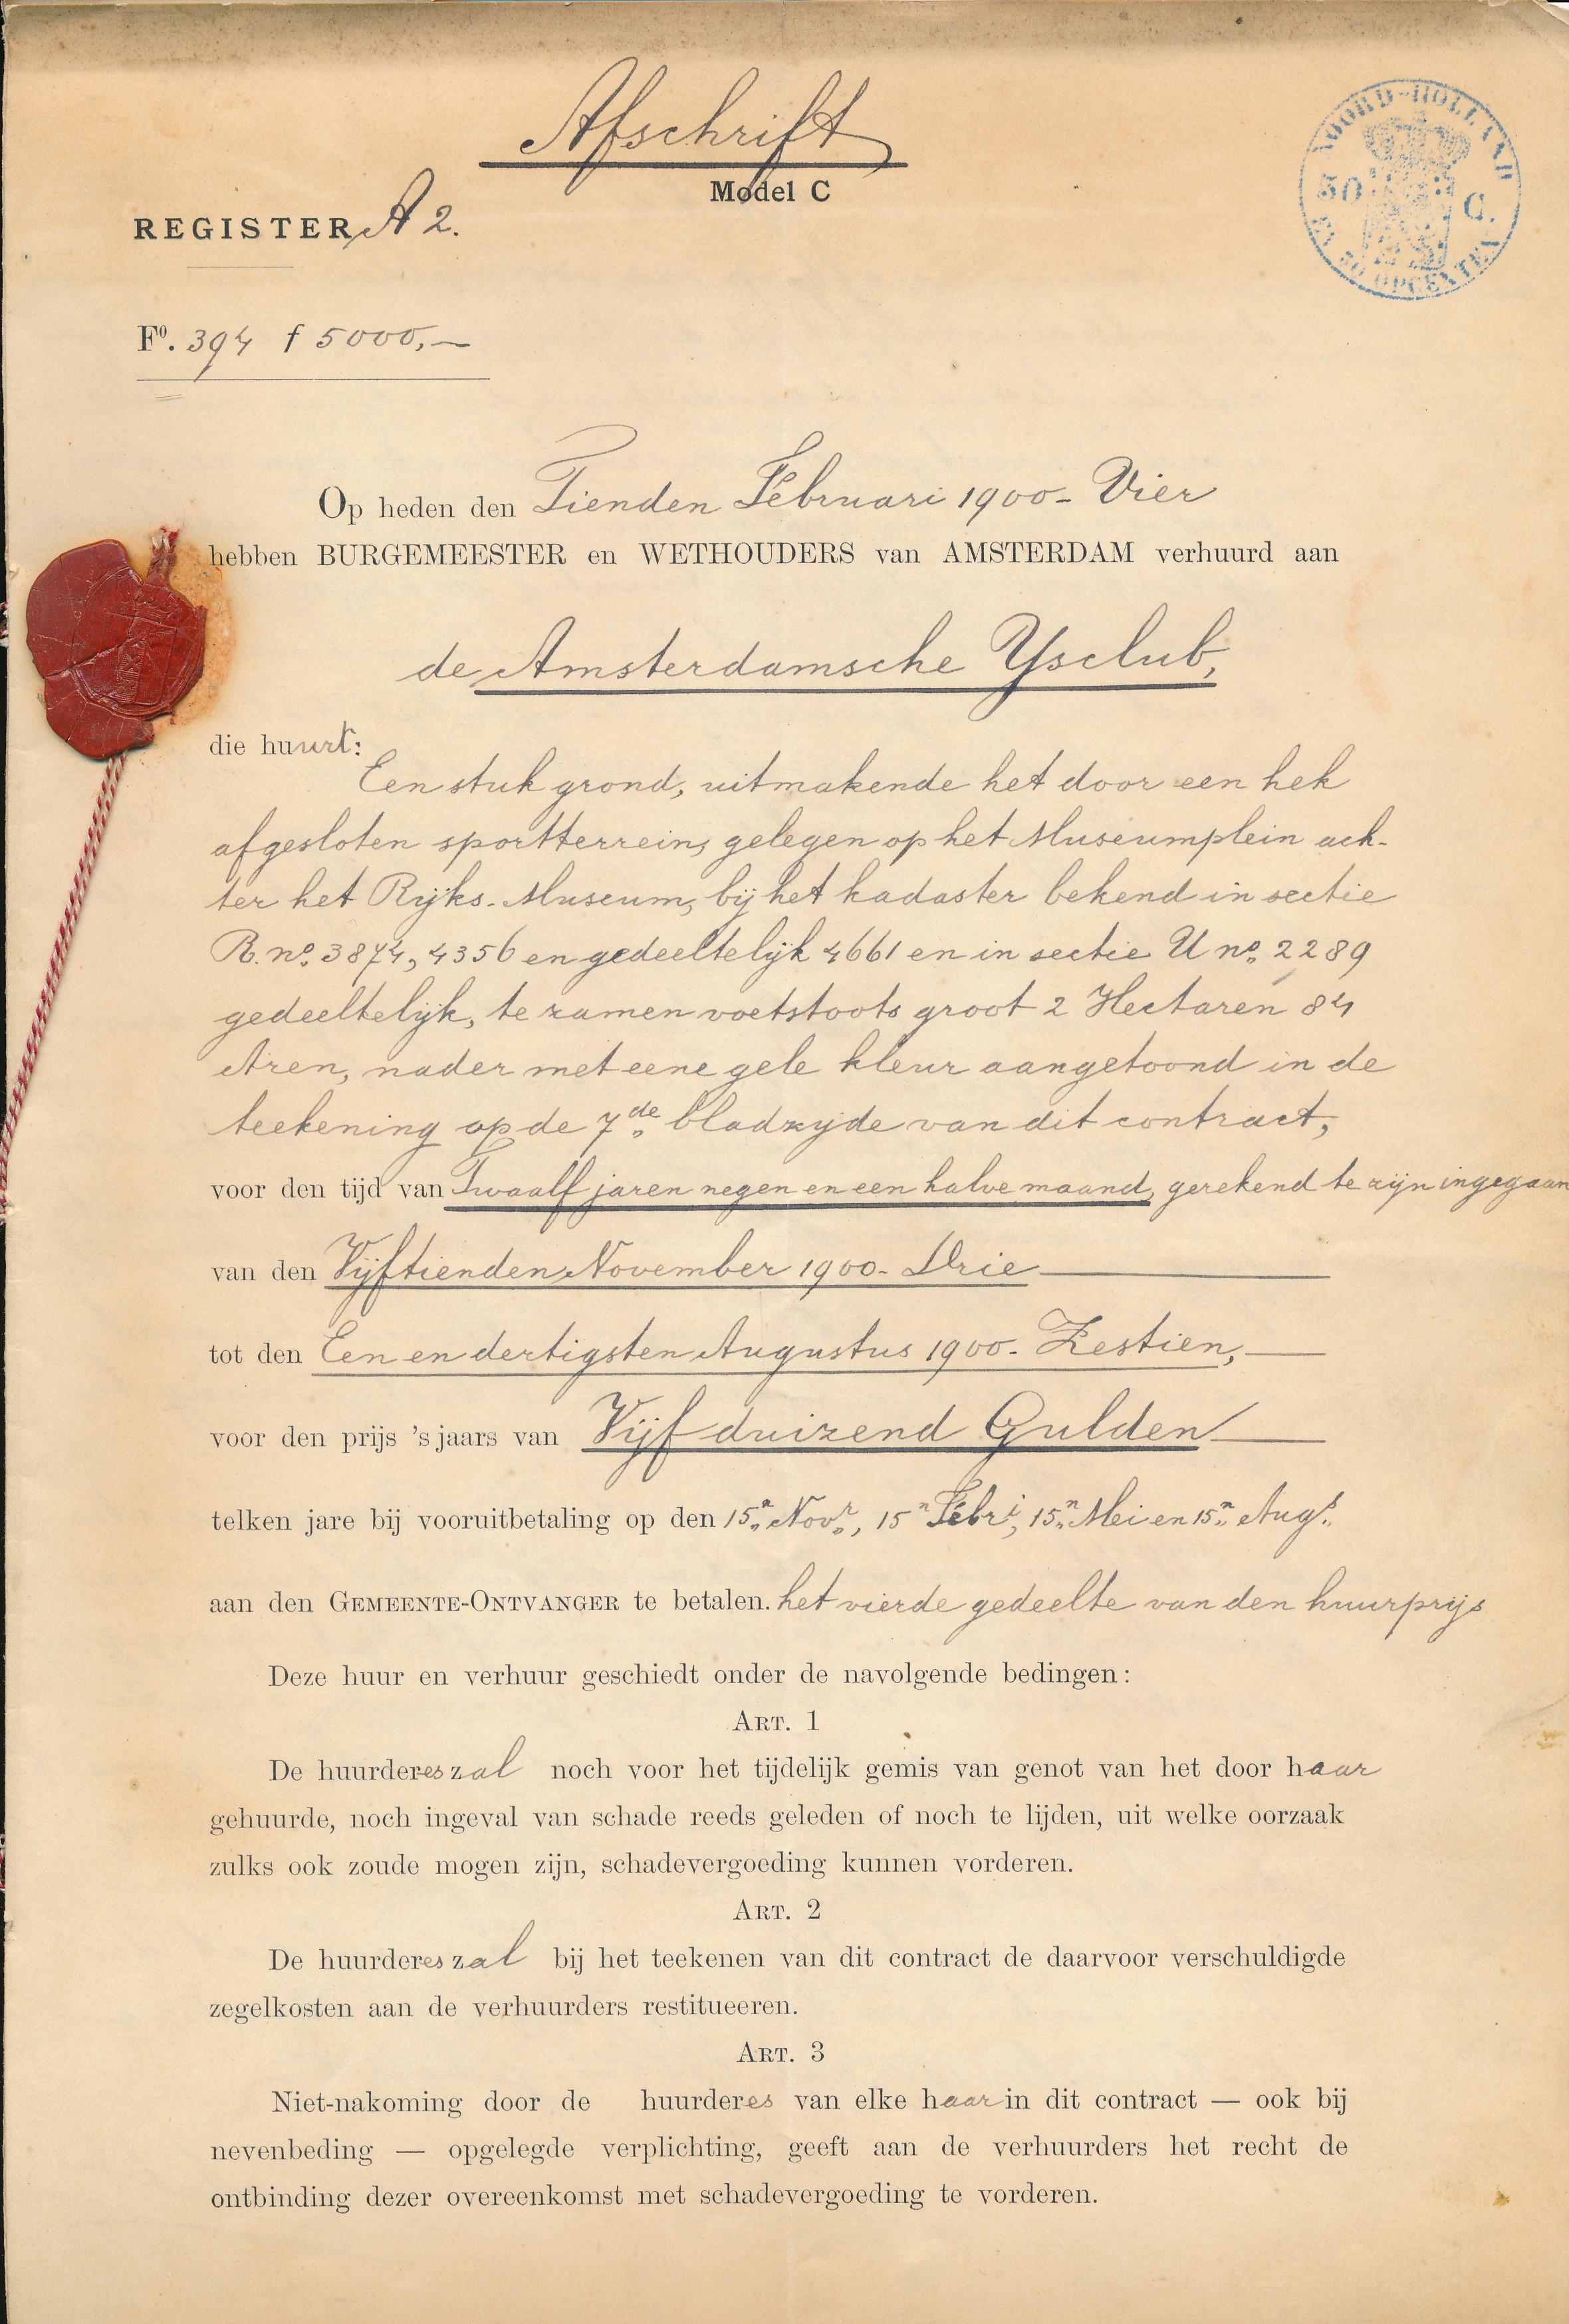 Afschrift
Model C
NOORD-HOLLAND
50 C.
50 OPCENTEN
REGISTER A 2.
Fº. 394 f 5000,—
Op heden den Tienden Februari 1900- Vier
hebben BURGEMEESTER en WETHOUDERS van AMSTERDAM verhuurd aan
de Amsterdamsche Ysclub,
die huurt:
Een stuk grond, uitmakende het door een hek
afgesloten sportterrein, gelegen op het Museumplein ach-
ter het Rijks-Museum, bij het kadaster bekend in sectie
R. nº. 3874, 4356 en gedeeltelijk 4661 en in sectie U nº. 2289
gedeeltelijk, te zamen voetstoots groot 2 Hectaren 84
Aren, nader met eene gele kleur aangetoond in de
teekening op de 7de bladzijde van dit contract,
voor den tijd van Twaalf jaren negen en een halve maand, gerekend te zijn ingegaan
van den Vijftienden November 1900- Drie
tot den Een en dertigsten Augustus 1900- Zestien,
voor den prijs 's jaars van Vijf duizend Gulden
telken jare bij vooruitbetaling op den 15n Novr, 15n Febri, 15n Mei en 15n Augs
aan den GEMEENTE-ONTVANGER te betalen. het vierde gedeelte van den huurprijs
Deze huur en verhuur geschiedt onder de navolgende bedingen:
ART. 1
De huurderes zal noch voor het tijdelijk gemis van genot van het door haar
gehuurde, noch ingeval van schade reeds geleden of noch te lijden, uit welke oorzaak
zulks ook zoude mogen zijn, schadevergoeding kunnen vorderen.
ART. 2
De huurderes zal bij het teekenen van dit contract de daarvoor verschuldigde
zegelkosten aan de verhuurders restitueeren.
ART. 3
Niet-nakoming door de huurderes van elke haar in dit contract — ook bij
nevenbeding — opgelegde verplichting, geeft aan de verhuurders het recht de
ontbinding dezer overeenkomst met schadevergoeding te vorderen.